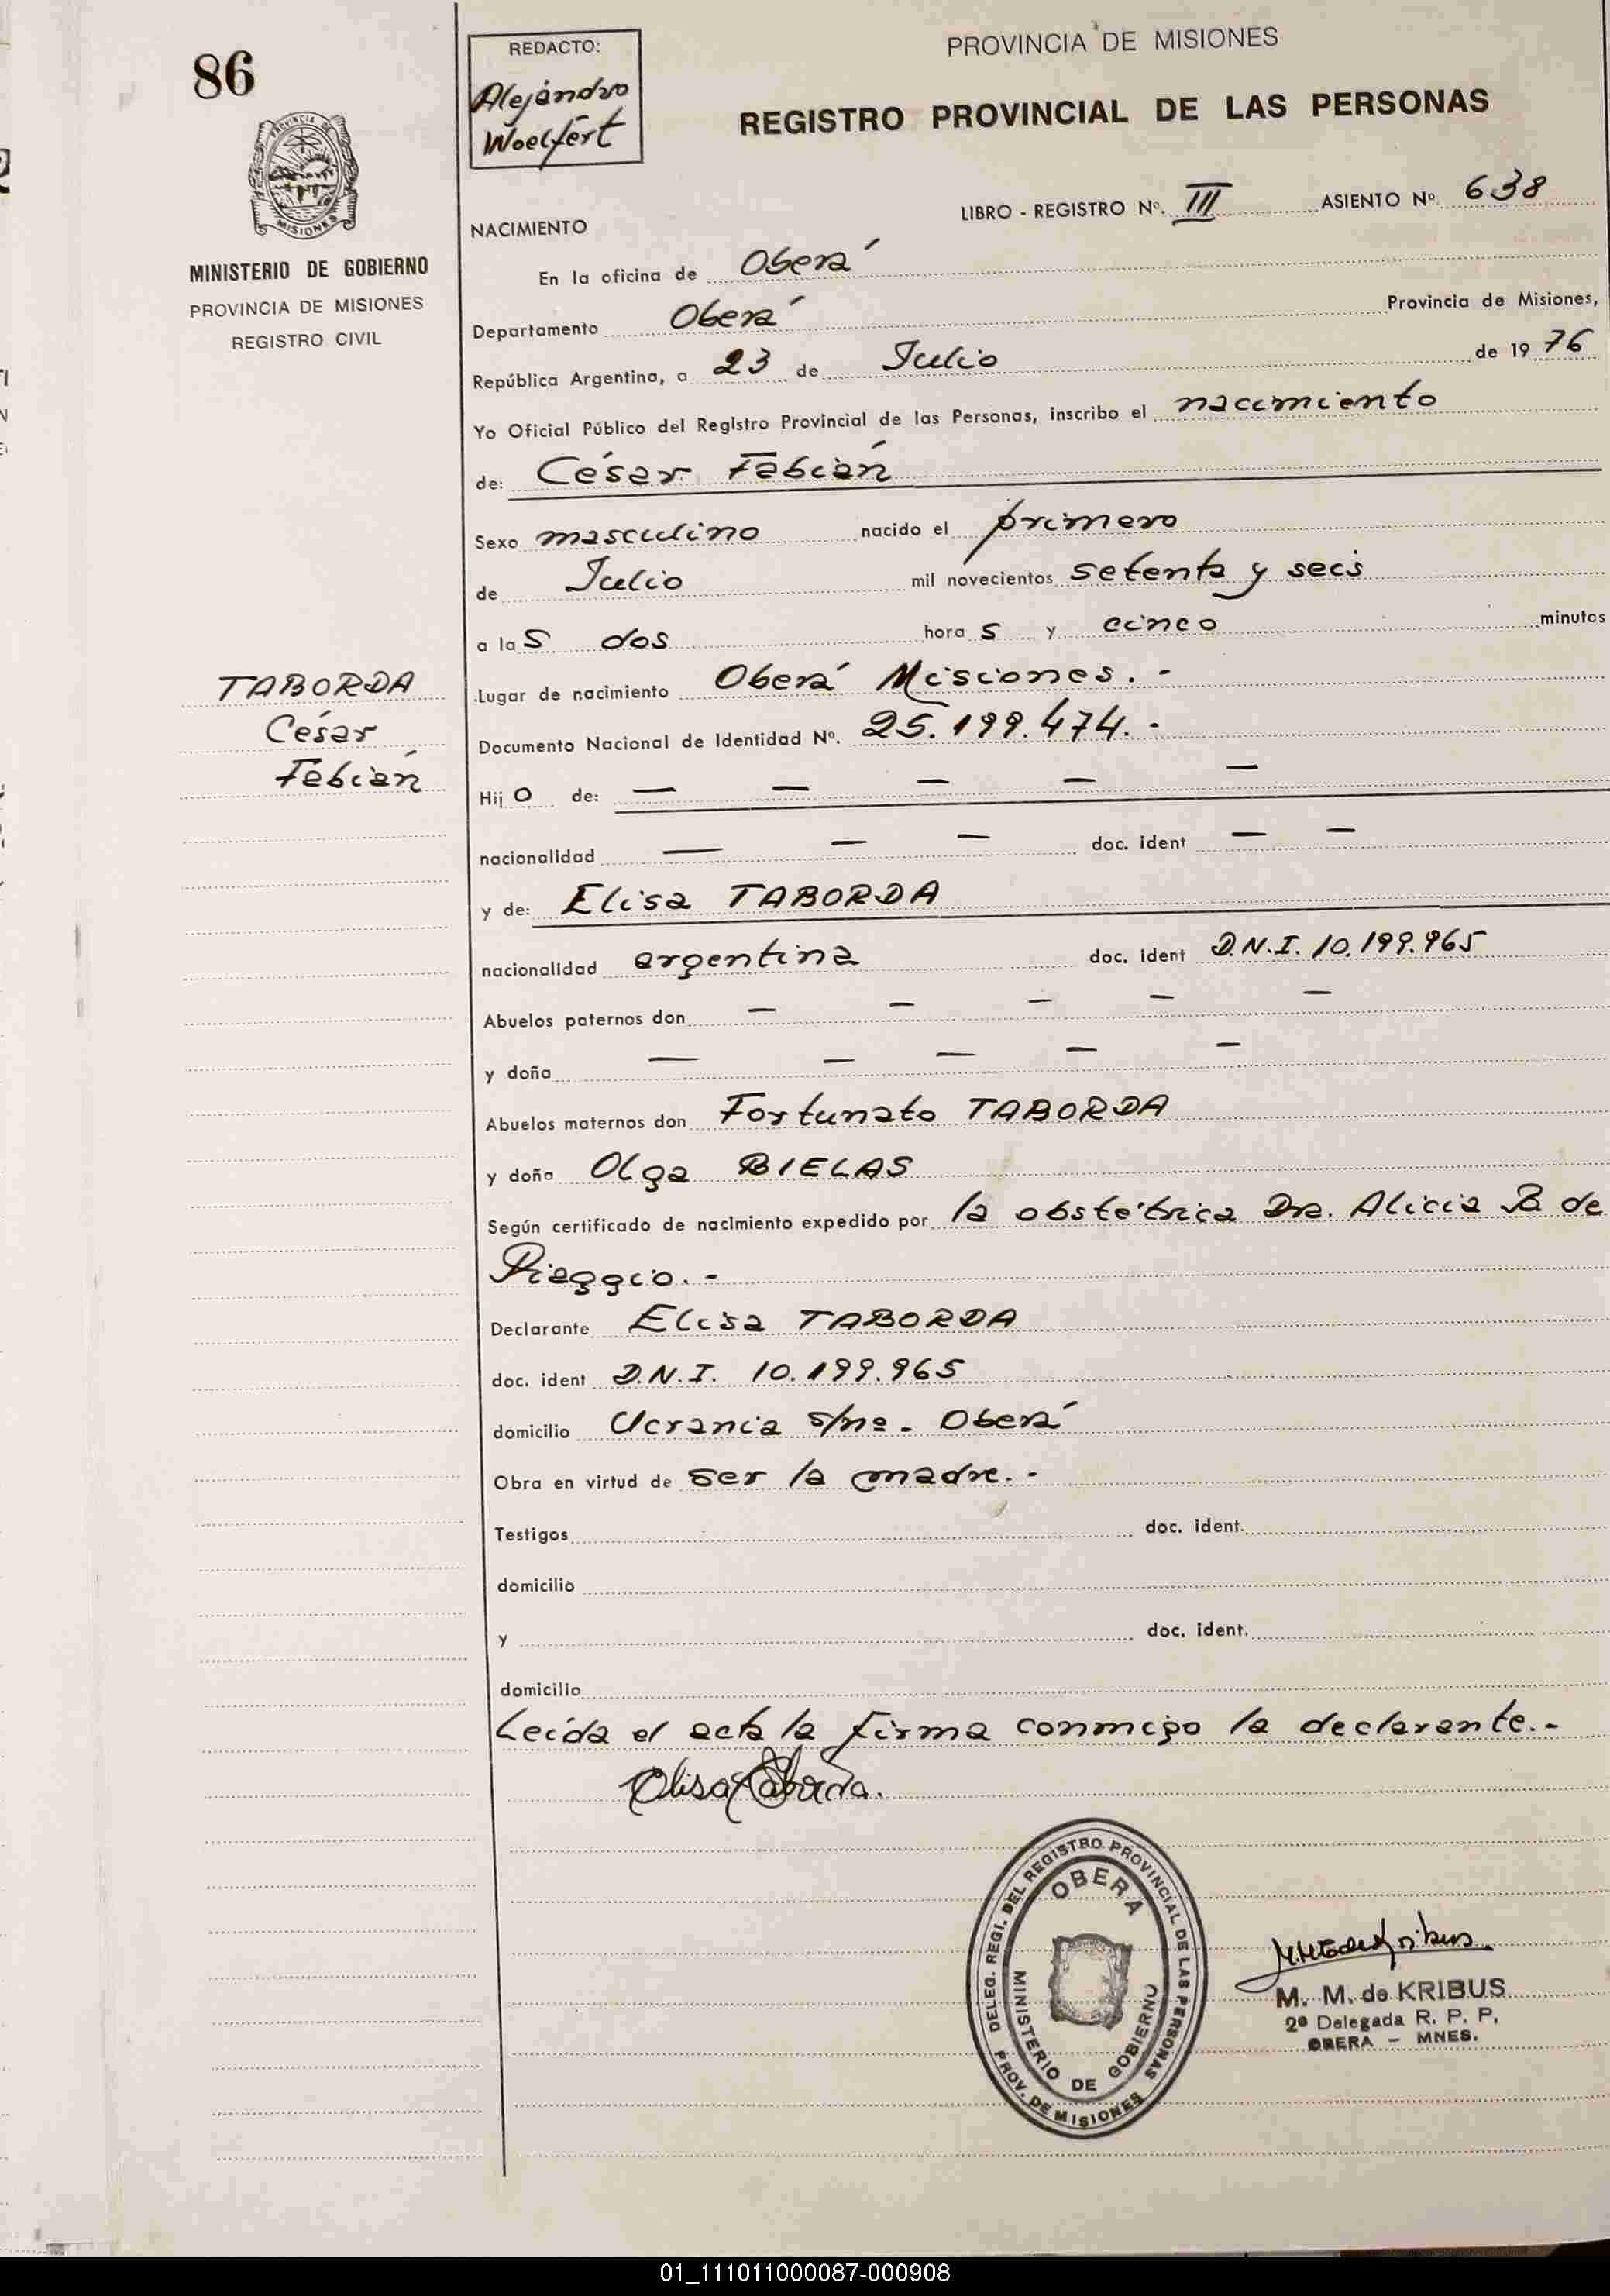 86
REDACTO:
Alejandro
Woelfert
PROVINCIA DE MISIONES
REGISTRO PROVINCIAL DE LAS PERSONAS
PROVINCIA DE
MISIONES
MINISTERIO DE GOBIERNO
PROVINCIA DE MISIONES
REGISTRO CIVIL
LIBRO - REGISTRO Nº. III ASIENTO Nº 638
NACIMIENTO
En la oficina de Oberá
Departamento Oberá Provincia de Misiones,
República Argentina, a 23 de Julio de 1976
Yo Oficial Público del Registro Provincial de las Personas, inscribo el nacimiento
de: César Fabián
Sexo masculino nacido el primero
de Julio mil novecientos setenta y seis
a las dos horas y cinco minutos
Lugar de nacimiento Oberá Misiones.-
Documento Nacional de Identidad Nº. 25.199.474.-
TABORDA
César
Fabián
Hijo de: — — — — —
nacionalidad — — — doc. ident — —
y de: Elisa TABORDA
nacionalidad argentina doc. ident D.N.I. 10.199.965
Abuelos paternos don — — — — —
y doña — — — — —
Abuelos maternos don Fortunato TABORDA
y doña Olga BIELAS
Según certificado de nacimiento expedido por la obstétrica Dra. Alicia B de
Piaggio.-
Declarante Elisa TABORDA
doc. ident D.N.I. 10.199.965
domicilio Ucrania s/nº. Oberá
Obra en virtud de ser la madre.-
Testigos doc. ident.
domicilio
y doc. ident.
domicilio
Leída el acta la firma conmigo la declarante.-
Elisa Taborda.
DELEG. REGI. DEL REGISTRO PROVINCIAL DE LAS PERSONAS
PROV. DE MISIONES
OBERA
MINISTERIO DE GOBIERNO
M. M. de KRIBUS
2ª Delegada R. P. P.
OBERA - MNES.
01_111011000087-000908